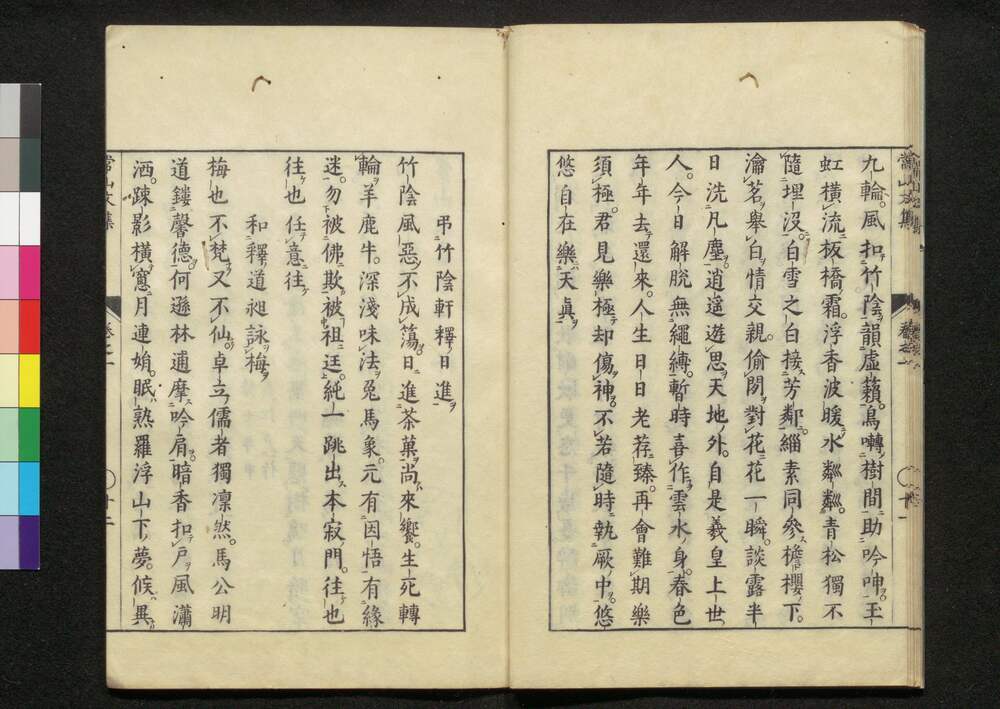 九輪。風扣竹陰韻虛籟。鳥囀樹間助吟呻。玉
虹橫流板橋霜。浮香波暖水粼粼。青松獨不
隨埋沒。白雪之白接芳鄰。緇素同參櫓櫻下。
瀹茗舉白情交親。偷閑對花花一瞬。談露半
日洗凡塵。逍遙遊思天地外。自是羲皇上世
人。今日解脫無繩縛。暫時喜作雲水身。春色
年年去還來。人生日日老荐臻。再會難期樂
須極。君見樂極却傷神。不若隨時執厥中。悠
悠自在樂天眞。
弔竹陰軒釋日進
竹陰風惡不成蕩。日進茶菓尚來饗。生死轉
輪羊鹿牛。深淺味法兔馬象。元有因悟有緣
迷。勿被佛欺被祖迋。純一跳出本寂門。往也
往也任意往
和釋道昶詠梅
梅也不梵又不仙。卓立儒者獨凛然。馬公明
道鏤馨德。何遜林逋摩吟肩。暗香扣戶風瀟
洒。踈影橫窓月連娟。眠熟羅浮山下夢。候異
常山文集
卷之一
十二